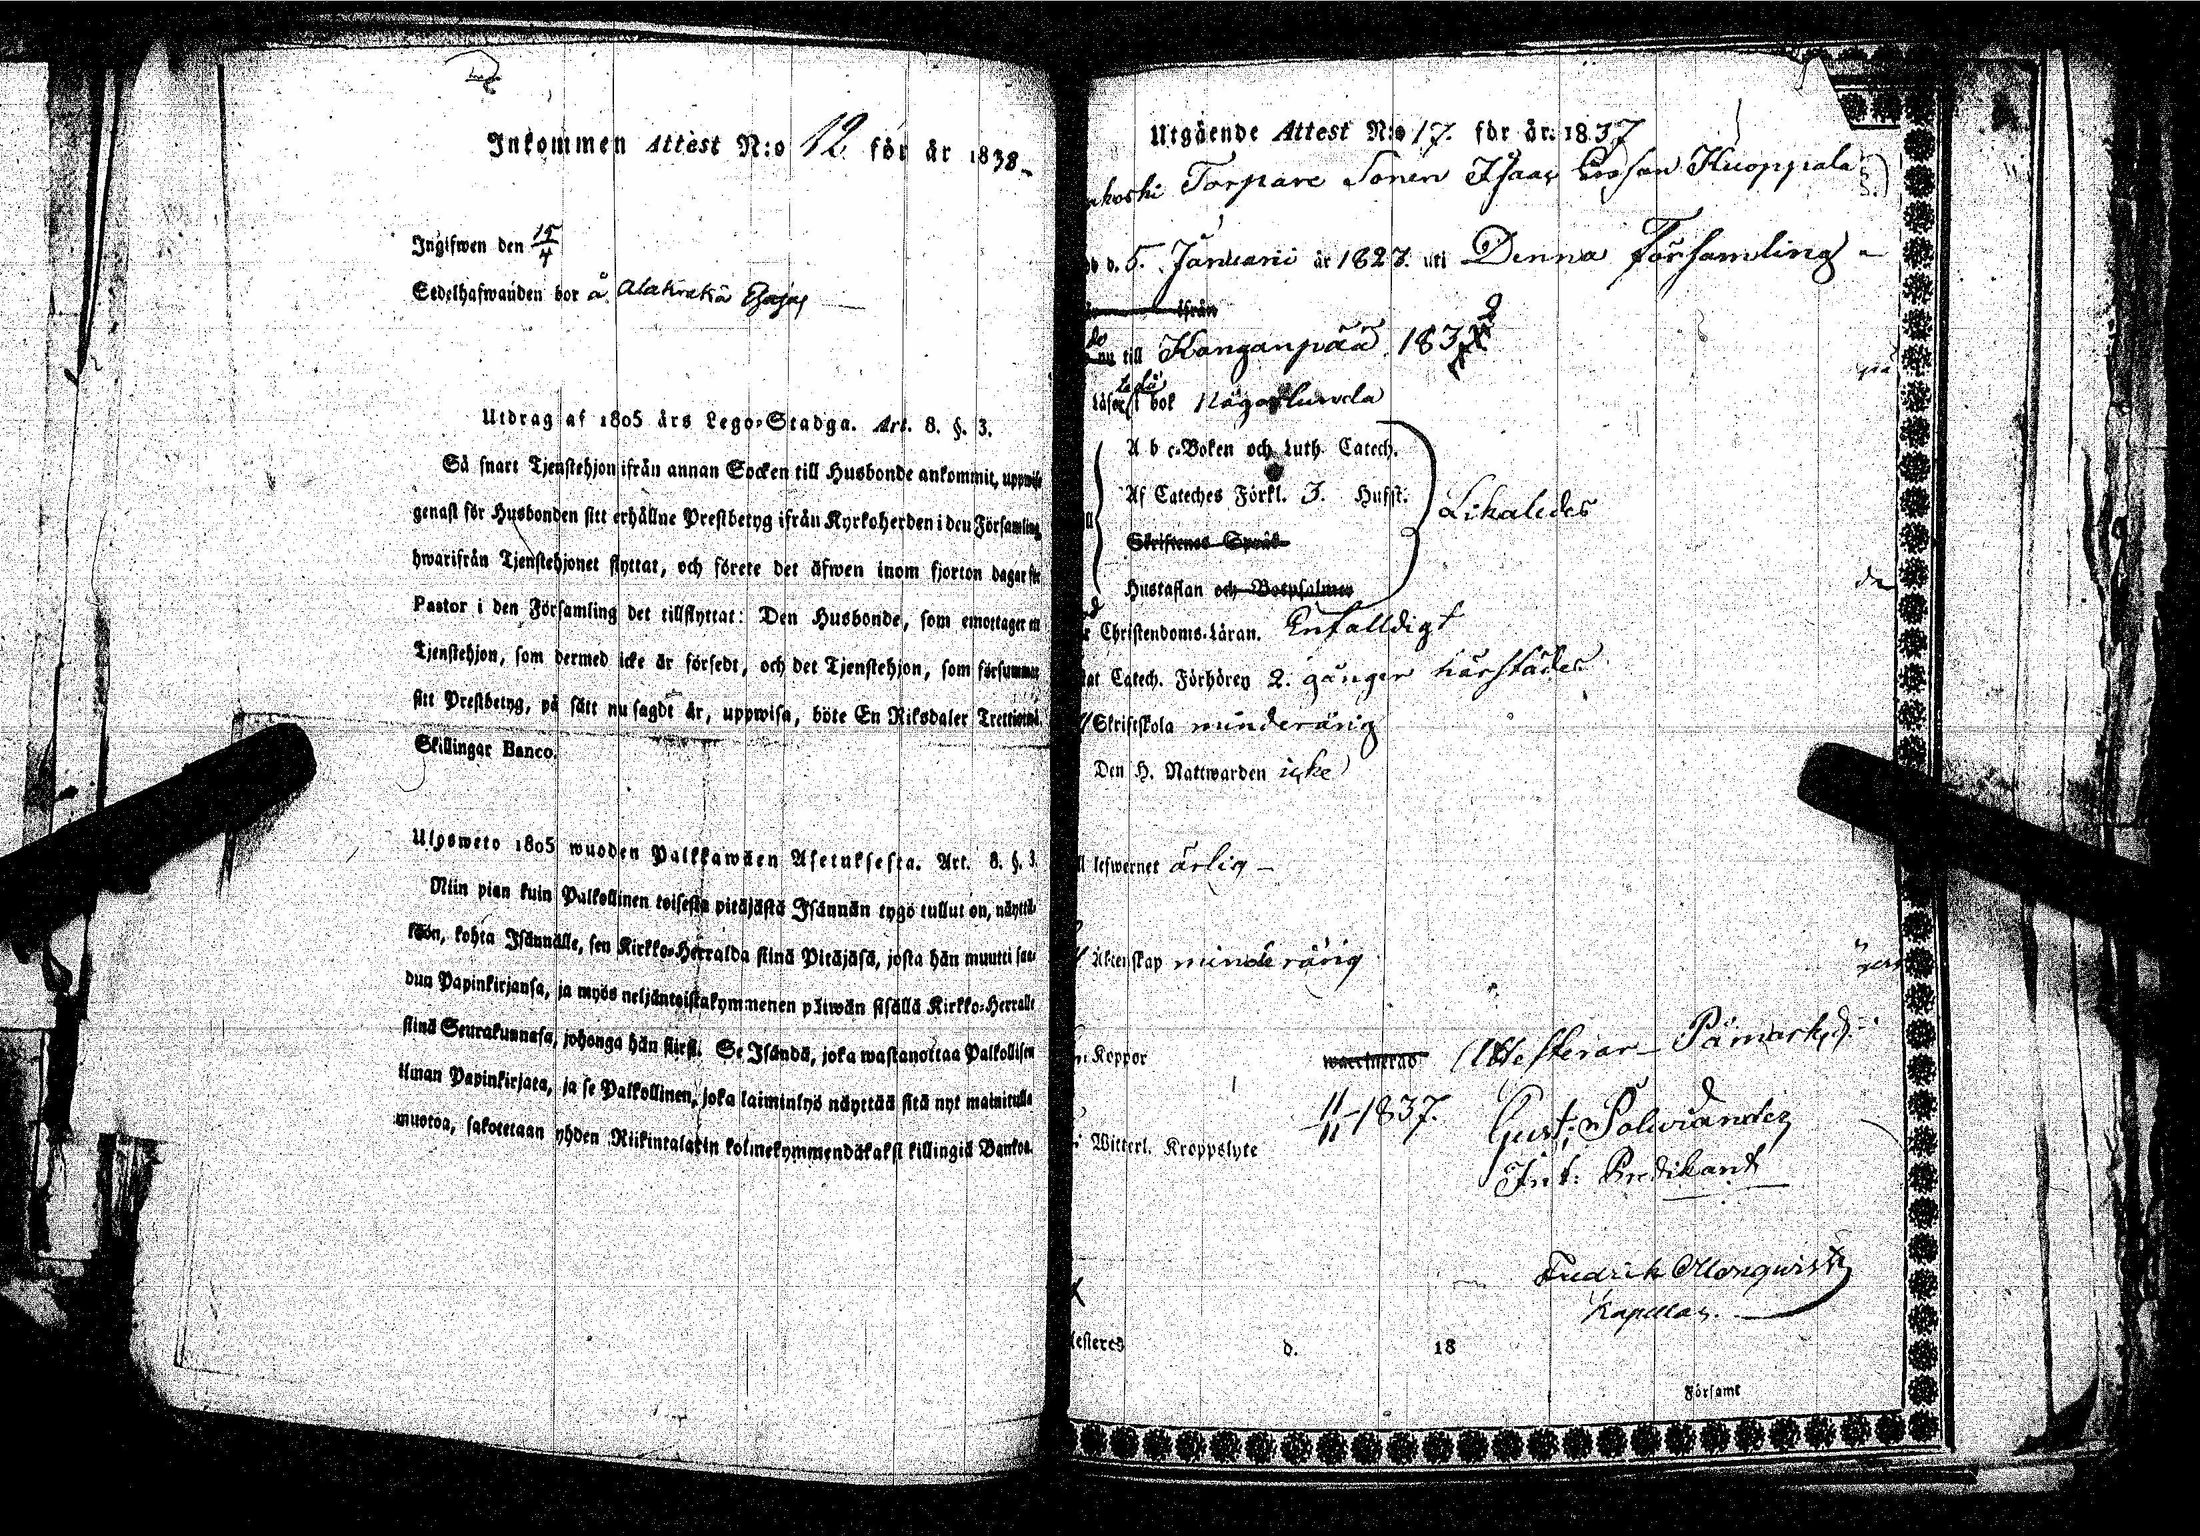 Inkommen Attest N:o 12 för år 1838
Ingifwen den 15/4
Sedelhafwanden bor å
Utdrag af 1805 års Lego-Stadga. Art. 8. §. 3.
Så snart Tjenstehjon ifrån annan Socken till Husbonde ankommit, uppwise
genast för Husbonden sitt erhållne Prestbetyg ifrån Kyrkoherden i den Församling
hwarifrån Tjenstehjonet flyttat, och förete det äfwen inom fjorton dagar för
Pastor i den Församling det tillflyttat: Den Husbonde, som emottager en
Tjenstehjon, som dermed icke är försedt, och det Tjenstehjon, som försummar
sitt Prestbetyg, på sätt nu sagdt är, uppwisa, böte En Riksdaler Trettiotwå
Skillingar Banco.
Ulosweto 1805 wuoden Palkkawäen Asetuksesta. Art. 8. §. 3.
Niin pian kuin Palkollinen toisesta pitäjästä Isännän tygö tullut on, näyttä-
köön, kohta Isännälle, sen Kirkko-Herralda siinä Pitäjäsä, josta hän muutti saa-
dun Papinkirjansa, ja myös neljäntoistakymmenen päiwän sisällä Kirkko-Herralle
siinä Seurakunnasa, johonga hän siirsi. Se Isändä, joka wastanottaa Palkollisen
ilman Papinkirjata, ja se Palkollinen, joka laiminlyö näyttää sitä nyt mainitulla
muotoa, sakotetaan yhden Riikintalarin kolmekymmendäkaksi killingiä Bankoa.
Utgående Attest N:o 17. för år 1837
Torpare Sonen Isaac Kuoppala
d. 5. Januarii år 1823. uti Denna Församling
ifrån
nu till Kanganpää 183
Läser bok Någorlunda
A b c-Boken och Luth. Catech.
Af Cateches Förkl. 3. Hufst. Likaledes
Skriftenes Språk
Hustaflan och Botpsalmer
Christendoms-Läran. Enfalldigt
Catech. Förhören 2. gånger härstädes
Skriftskola minderårig
Den H. Nattwarden icke
lefwernet ärlig
Äktenskap minderårig
Koppor waccinerad Attesterar Påmark, d.
11/11 1837. Gust: Polviander
Witterl. Kroppslyte
Int: Predikant
Fredrik
Kapellan.
d. 18
Församl